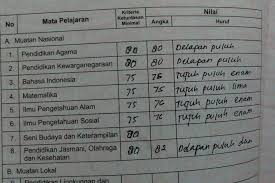 No Mata Pelajaran Kriteria Ketuntasan Minimal Nilai
Angka Huruf
A. Muatan Nasional
1. Pendidikan Agama 80 80 Delapan puluh
2. Pendidikan Kewarganegaraan 80 80 Delapan puluh
3. Bahasa Indonesia 75 76 Tujuh puluh enam
4. Matematika 75 75 Tujuh puluh lima
5. Ilmu Pengetahuan Alam 75 76 Tujuh puluh enam
6. Ilmu Pengetahuan Sosial 75 76 Tujuh puluh enam
7. Seni Budaya dan Keterampilan 80
8. Pendidikan Jasmani, Olahraga dan Kesehatan 80 82 Delapan puluh dua
B. Muatan Lokal